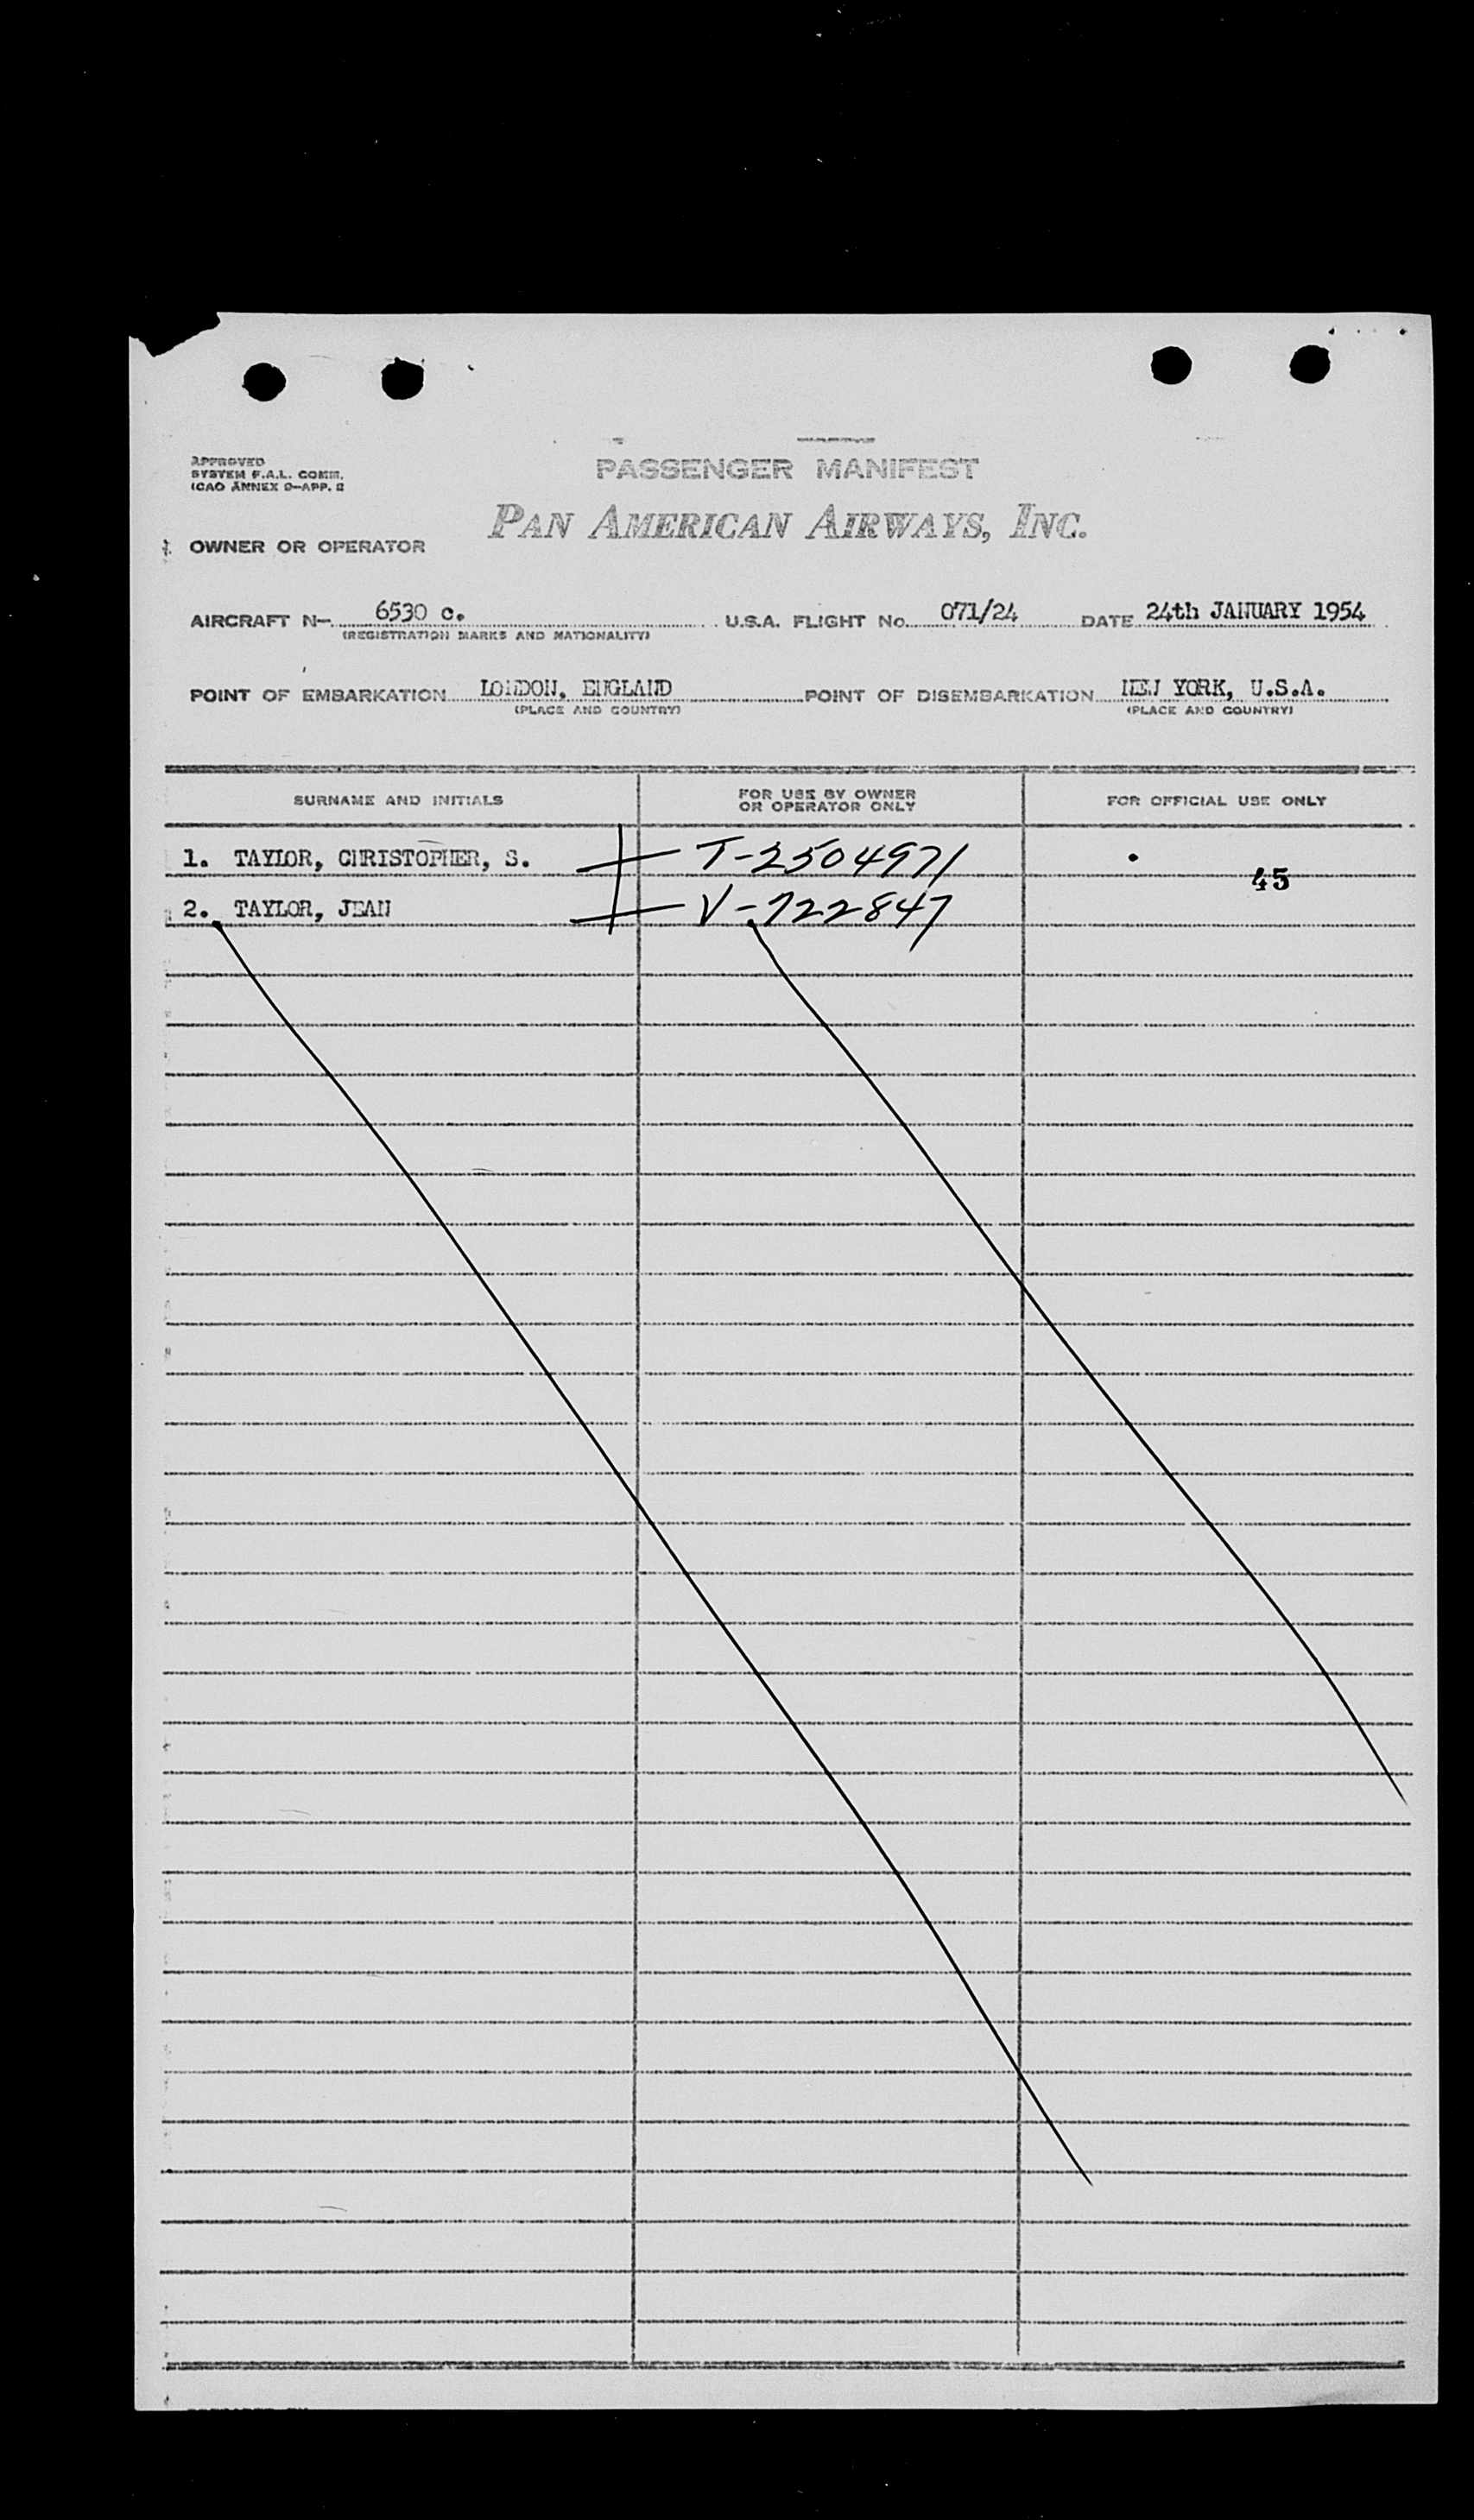 APPROVED
SYSTEM F.A.L. COMM.
ICAO ANNEX 9-APP. 2
PASSENGER MANIFEST
PAN AMERICAN AIRWAYS, INC.
OWNER OR OPERATOR
AIRCRAFT N- 6530 c. U.S.A. FLIGHT No. 071/24 DATE 24th JANUARY 1954
(REGISTRATION MARKS AND NATIONALITY)
POINT OF EMBARKATION LONDON, ENGLAND POINT OF DISEMBARKATION NEW YORK, U.S.A.
(PLACE AND COUNTRY) (PLACE AND COUNTRY)
SURNAME AND INITIALS FOR USE BY OWNER OR OPERATOR ONLY FOR OFFICIAL USE ONLY
1. TAYLOR, CHRISTOPHER, S. T-2504971
45
2. TAYLOR, JEAN V-722847